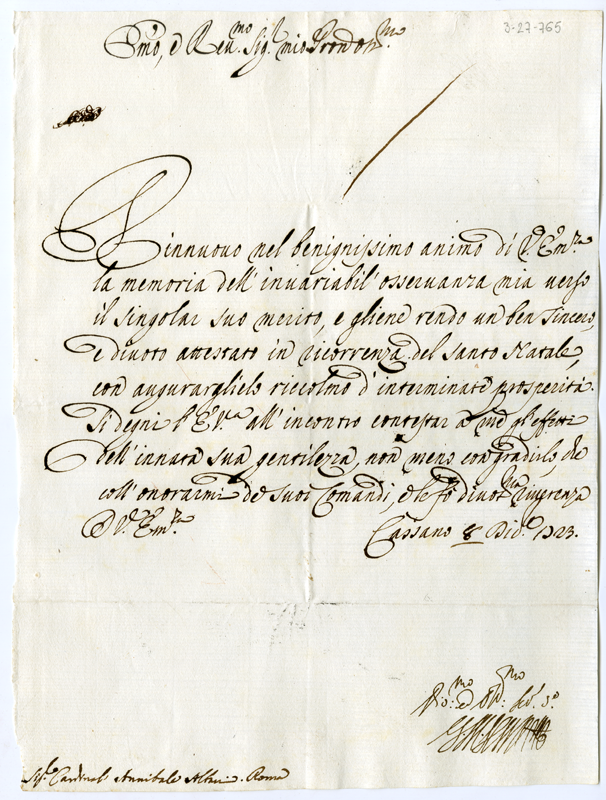 3-27-765
Em.o, e Reu.mo Sig.r mio Pron Oss.mo
Rinnuovo nel benignissimo animo di V.ra Em.za
la memoria dell' inuariabil' osseruanza mia verso
il singolar suo merito, e gliene rendo un ben sincero,
e diuoto attestato in ricorrenza del Santo Natale,
con augurarglielo riccolmo d' interminate prosperità.
Si degni l' E.V.ra all' incontro contestar a me gl' effetti
dell' innata sua gentilezza, non meno con gradirlo, che
coll' onorarmi de suoi Comandi, e le fò diuot.ma riuerenza
D V. Em.za
Cassano 8 Dic.e 1723.
et Obl. Ser.
Sig.r Cardinal Annibale Albani. Roma